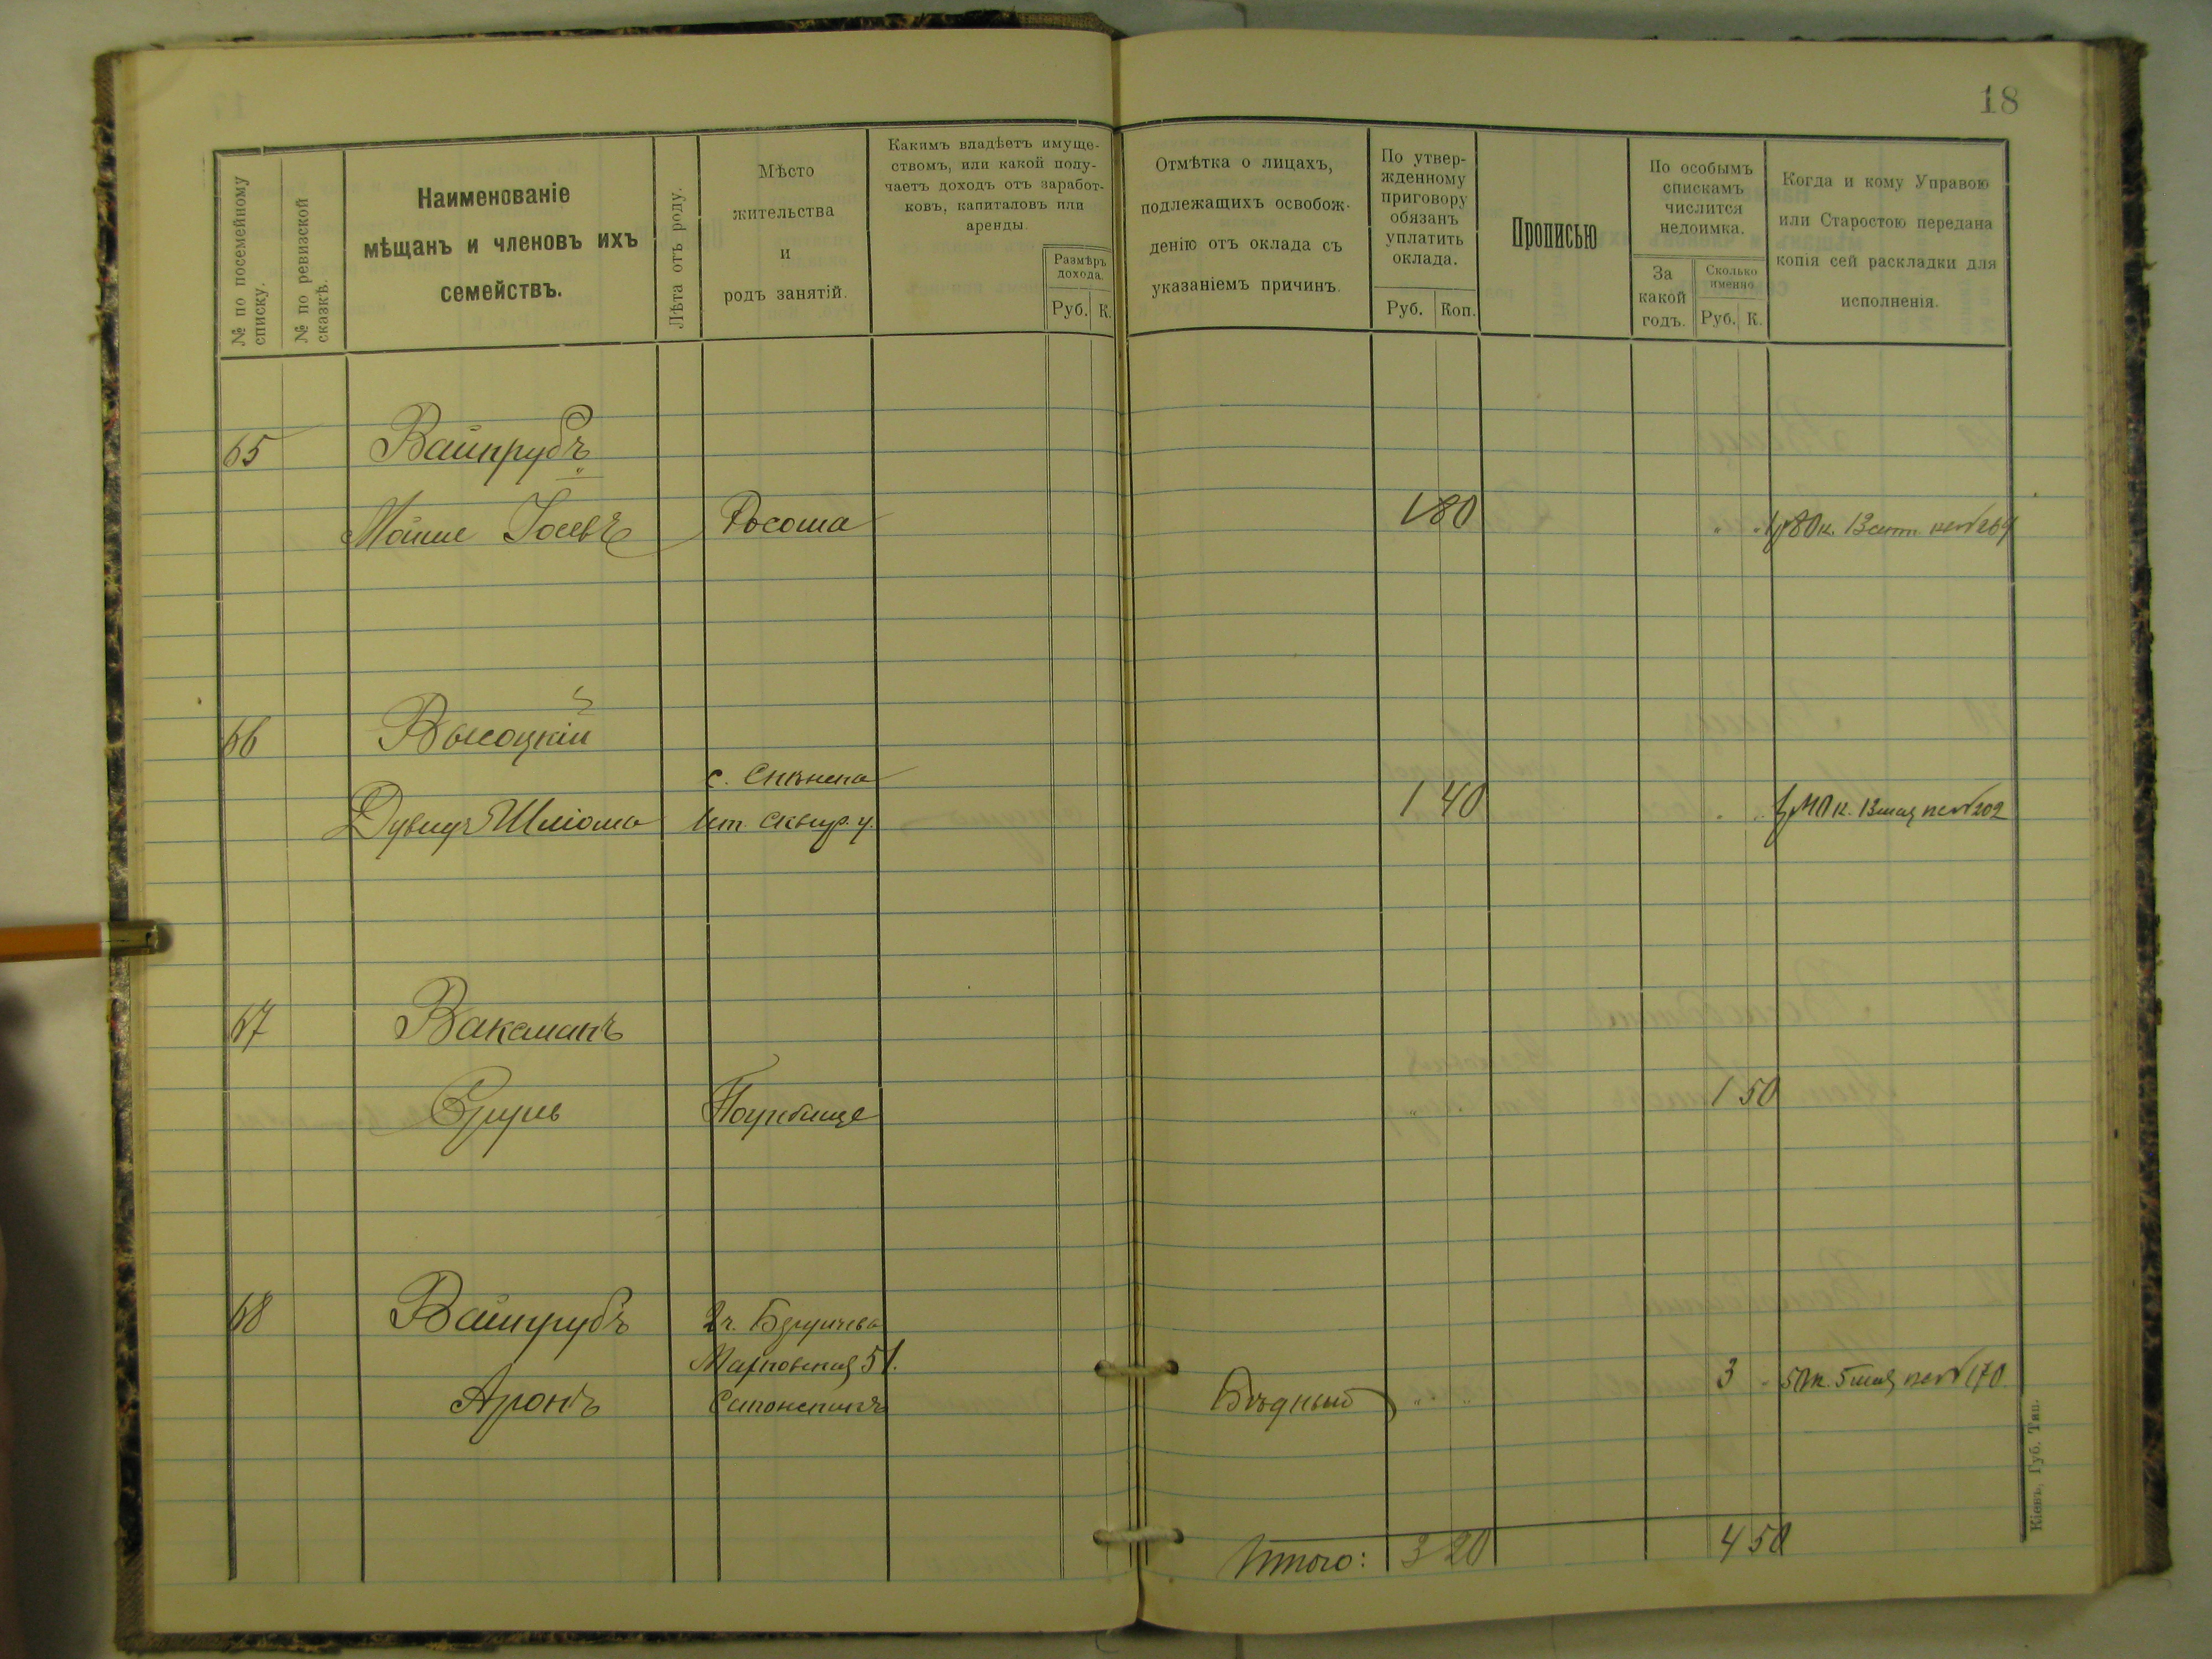 18
№ по посемейному списку.
№ по ревизской сказкѣ.
Наименованіе
мѣщанъ и членовъ ихъ
семействъ.
Лѣта отъ роду.
Мѣсто
жительства
и
родъ занятій.
Какимъ владѣетъ имуще-
ствомъ, или какой полу-
чаетъ доходъ отъ заработ-
ковъ, капиталовъ или
аренды.
Размѣръ
дохода.
Руб. К.
Отмѣтка о лицахъ,
подлежащихъ освобож-
денію отъ оклада съ
указаніемъ причинъ.
По утвер-
жденному
приговору
обязанъ
уплатить
оклада.
Руб. Коп.
Прописью
По особымъ
спискамъ
числится
недоимка.
За
какой
годъ.
Сколько
именно
Руб. К.
Когда и кому Управою
или Старостою передана
копія сей раскладки для
исполненія.
65 Вайнрубъ
Мойше Іосевъ Росоша 1 80 1р 80к. 13 сент. кв № 269
66 Высоцкій
Дувидъ Шліома Скѣир. у. 1 40 1р 40к. 13 мая кв № 202
67 Ваксманъ
Сруль Погребище 1 50
68 Вайнрубъ 2ч. Бердичева
Аронъ 51. Бѣдный 3 50к. 5 мая кв № 170
Итого: 3 20 4 50
Кіевъ, Губ. Тип.